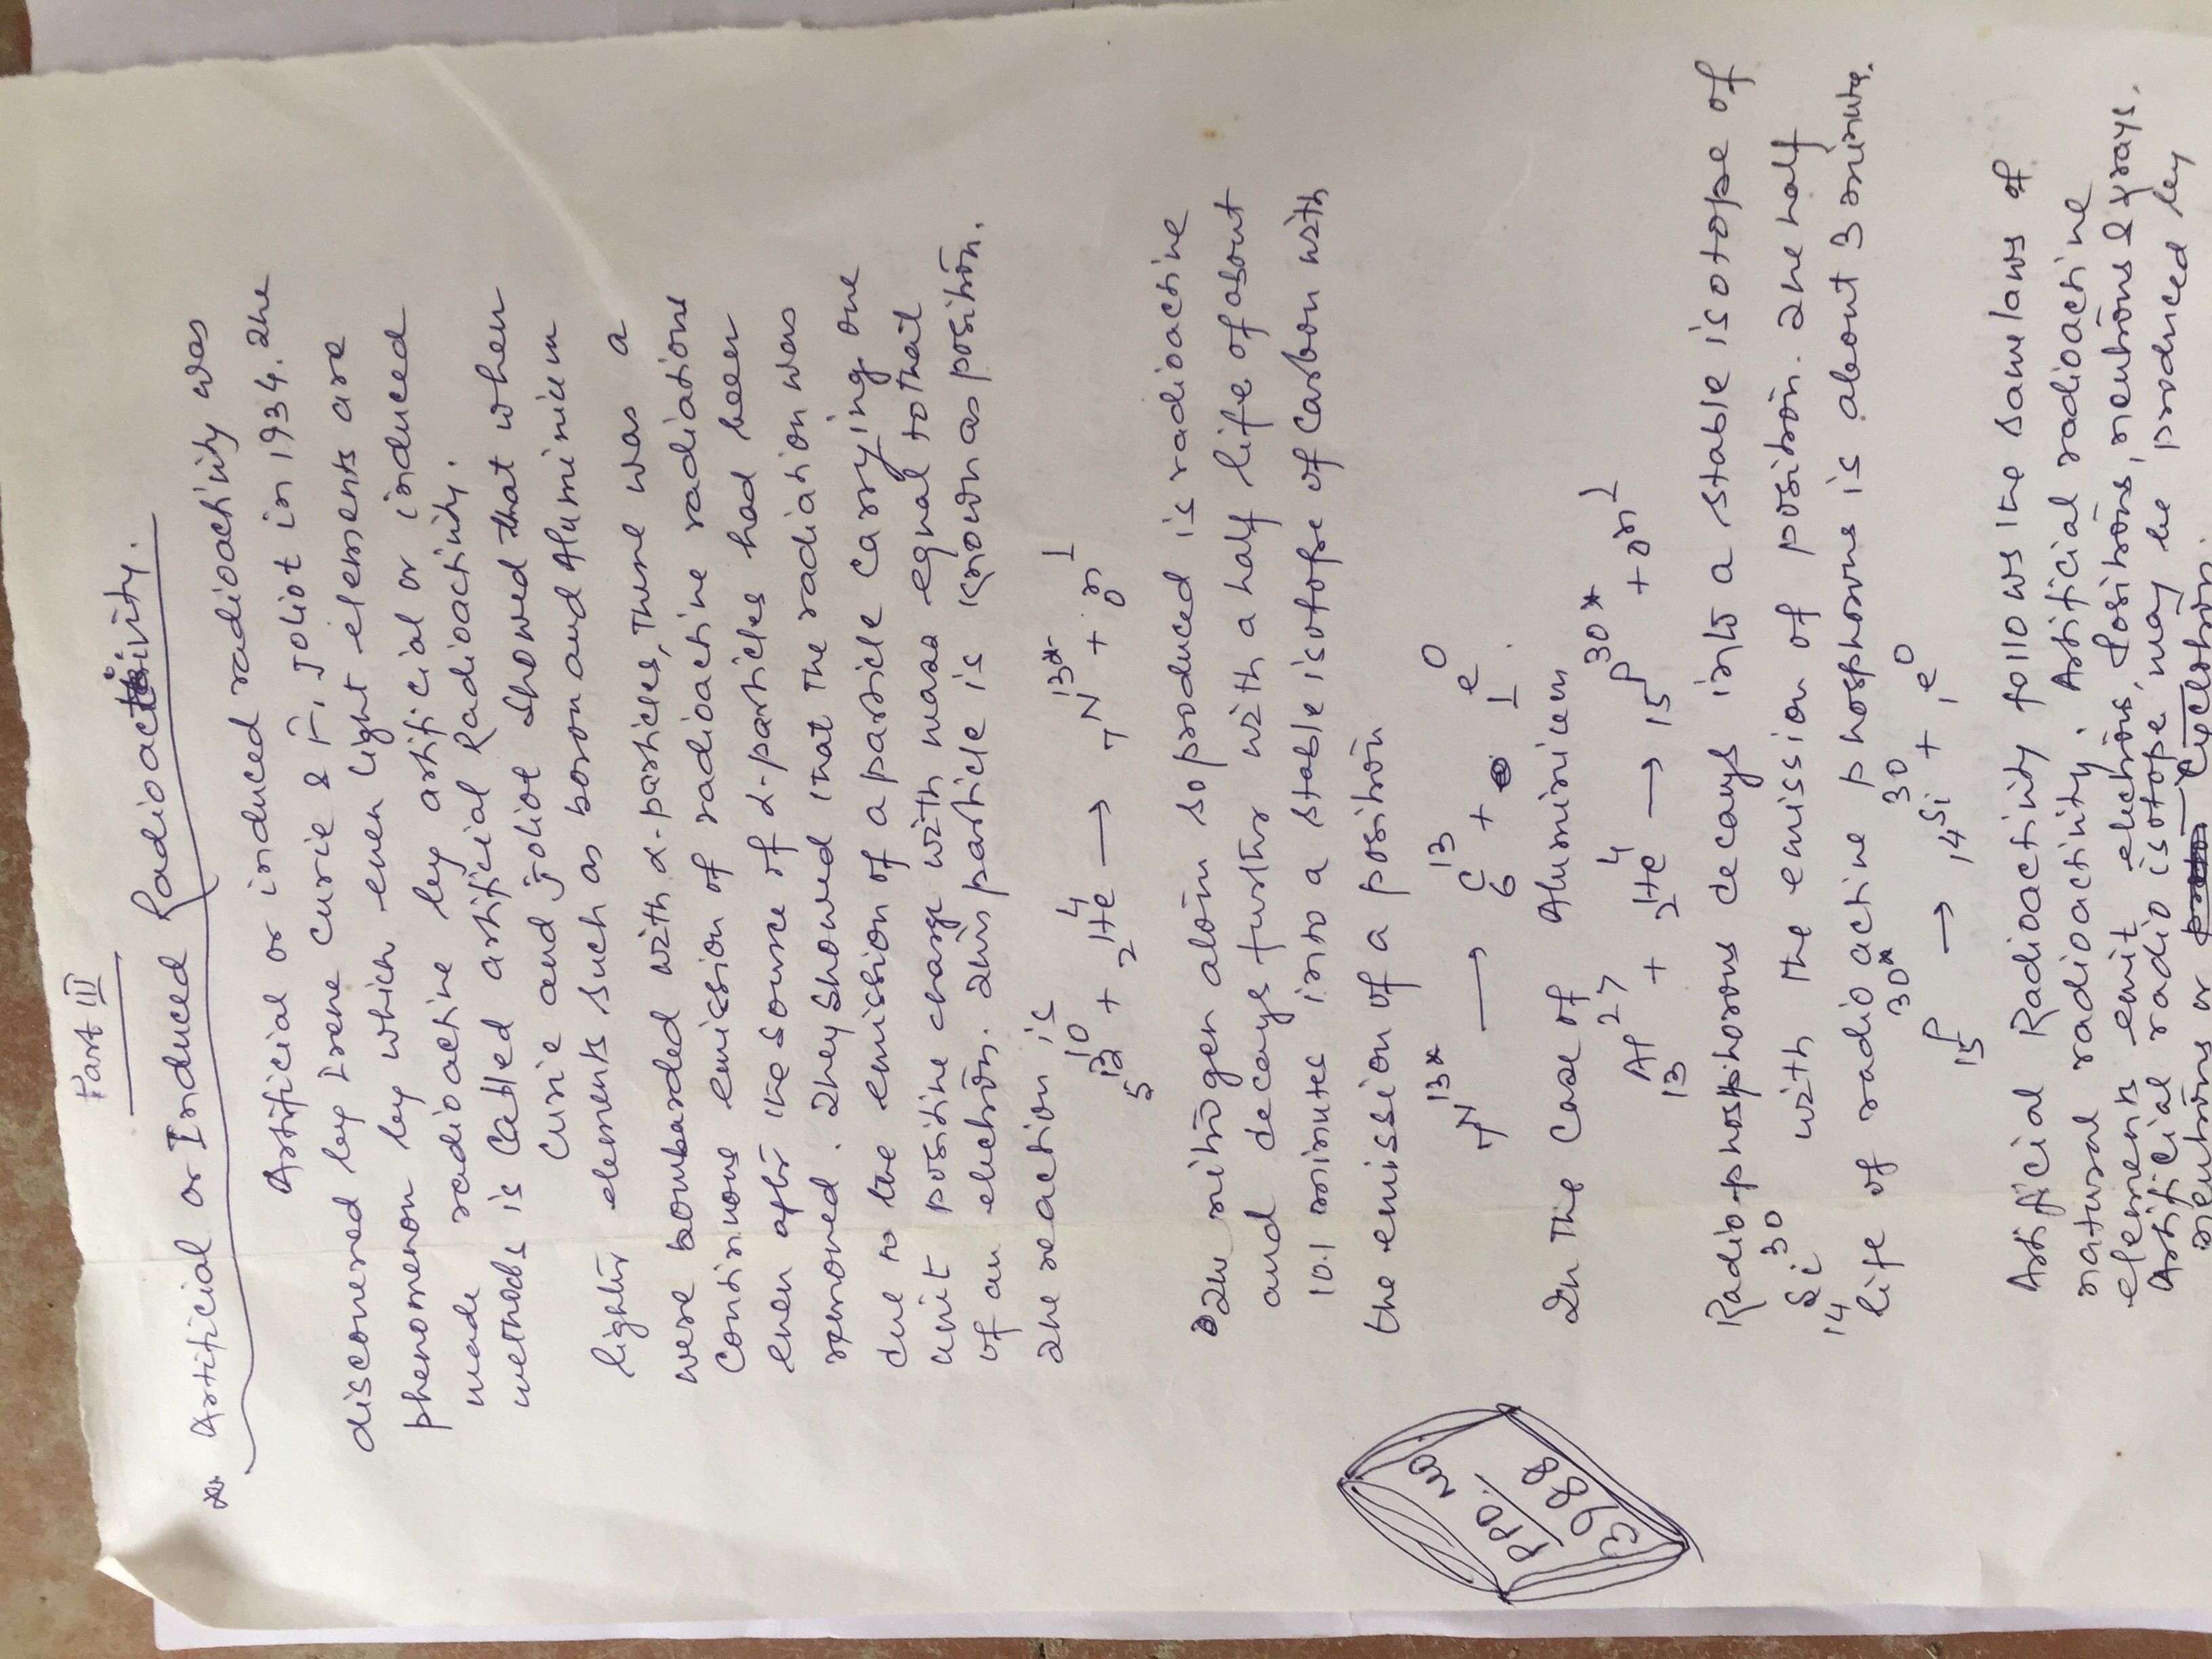 Part III
* Artificial or Induced Radioactivity.
Artificial or induced radioactivity was
discovered by Irene Curie & F. Joliot in 1934. The
phenomenon by which even light elements are
made radioactive by artificial or induced
methods is called artificial Radioactivity.
Curie and Joliot showed that when
lighter elements such as boron and Aluminium
were bombarded with α-particles, There was a
continuous emission of radioactive radiations
even after the source of α-particles had been
removed. They showed that the radiation was
due to the emission of a particle carrying one
unit positive charge with mass equal to that
of an electron. This particle is known as positron.
The reaction is
₅B¹⁰ + ₂He⁴ → ₇N¹³* + ₀n¹
The nitrogen atom so produced is radioactive
and decays further with a half life of about
10.1 minutes into a stable isotope of Carbon with
the emission of a positron
₇N¹³* → ₆C¹³ + ₁e⁰
In the Case of Aluminium
₁₃Al²⁷ + ₂He⁴ → ₁₅P³⁰* + ₀n¹
Radiophosphorous decays into a stable isotope of
₁₄Si³⁰ with the emission of positron. The half
life of radioactive phosphorous is about 3 minute.
₁₅P³⁰* → ₁₄Si³⁰ + ₁e⁰
Artificial Radioactivity follows the same laws of
natural radioactivity. Artificial radioactive
elements emit electrons, Positrons, neutrons & γ rays.
Artificial radio isotope, may be produced by
neutrons or Cyclotron.
RPO. NO.
3988